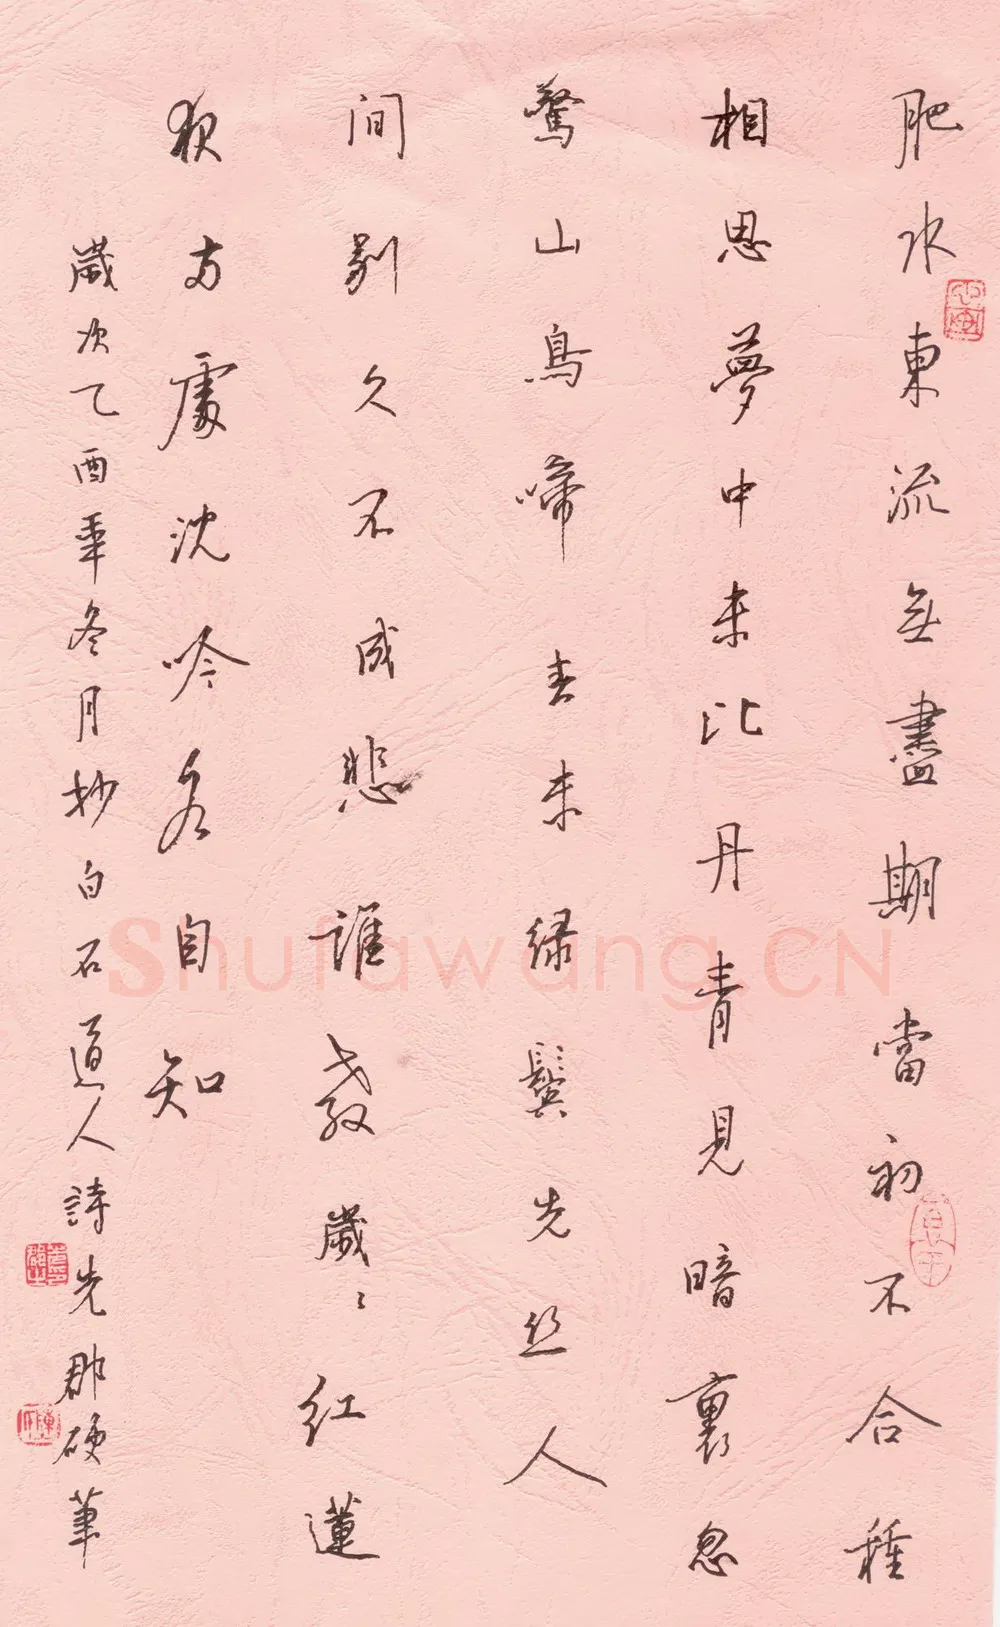 肥水東流無盡期當初不合種
相思夢中未比丹青見暗裏忽
驚山鳥啼春未綠鬢先絲人
間別久不成悲誰教歲〻紅蓮
夜兩處沈吟各自知
歲次乙酉年冬月抄白石道人詩先郡硬筆
Shufawang.CN